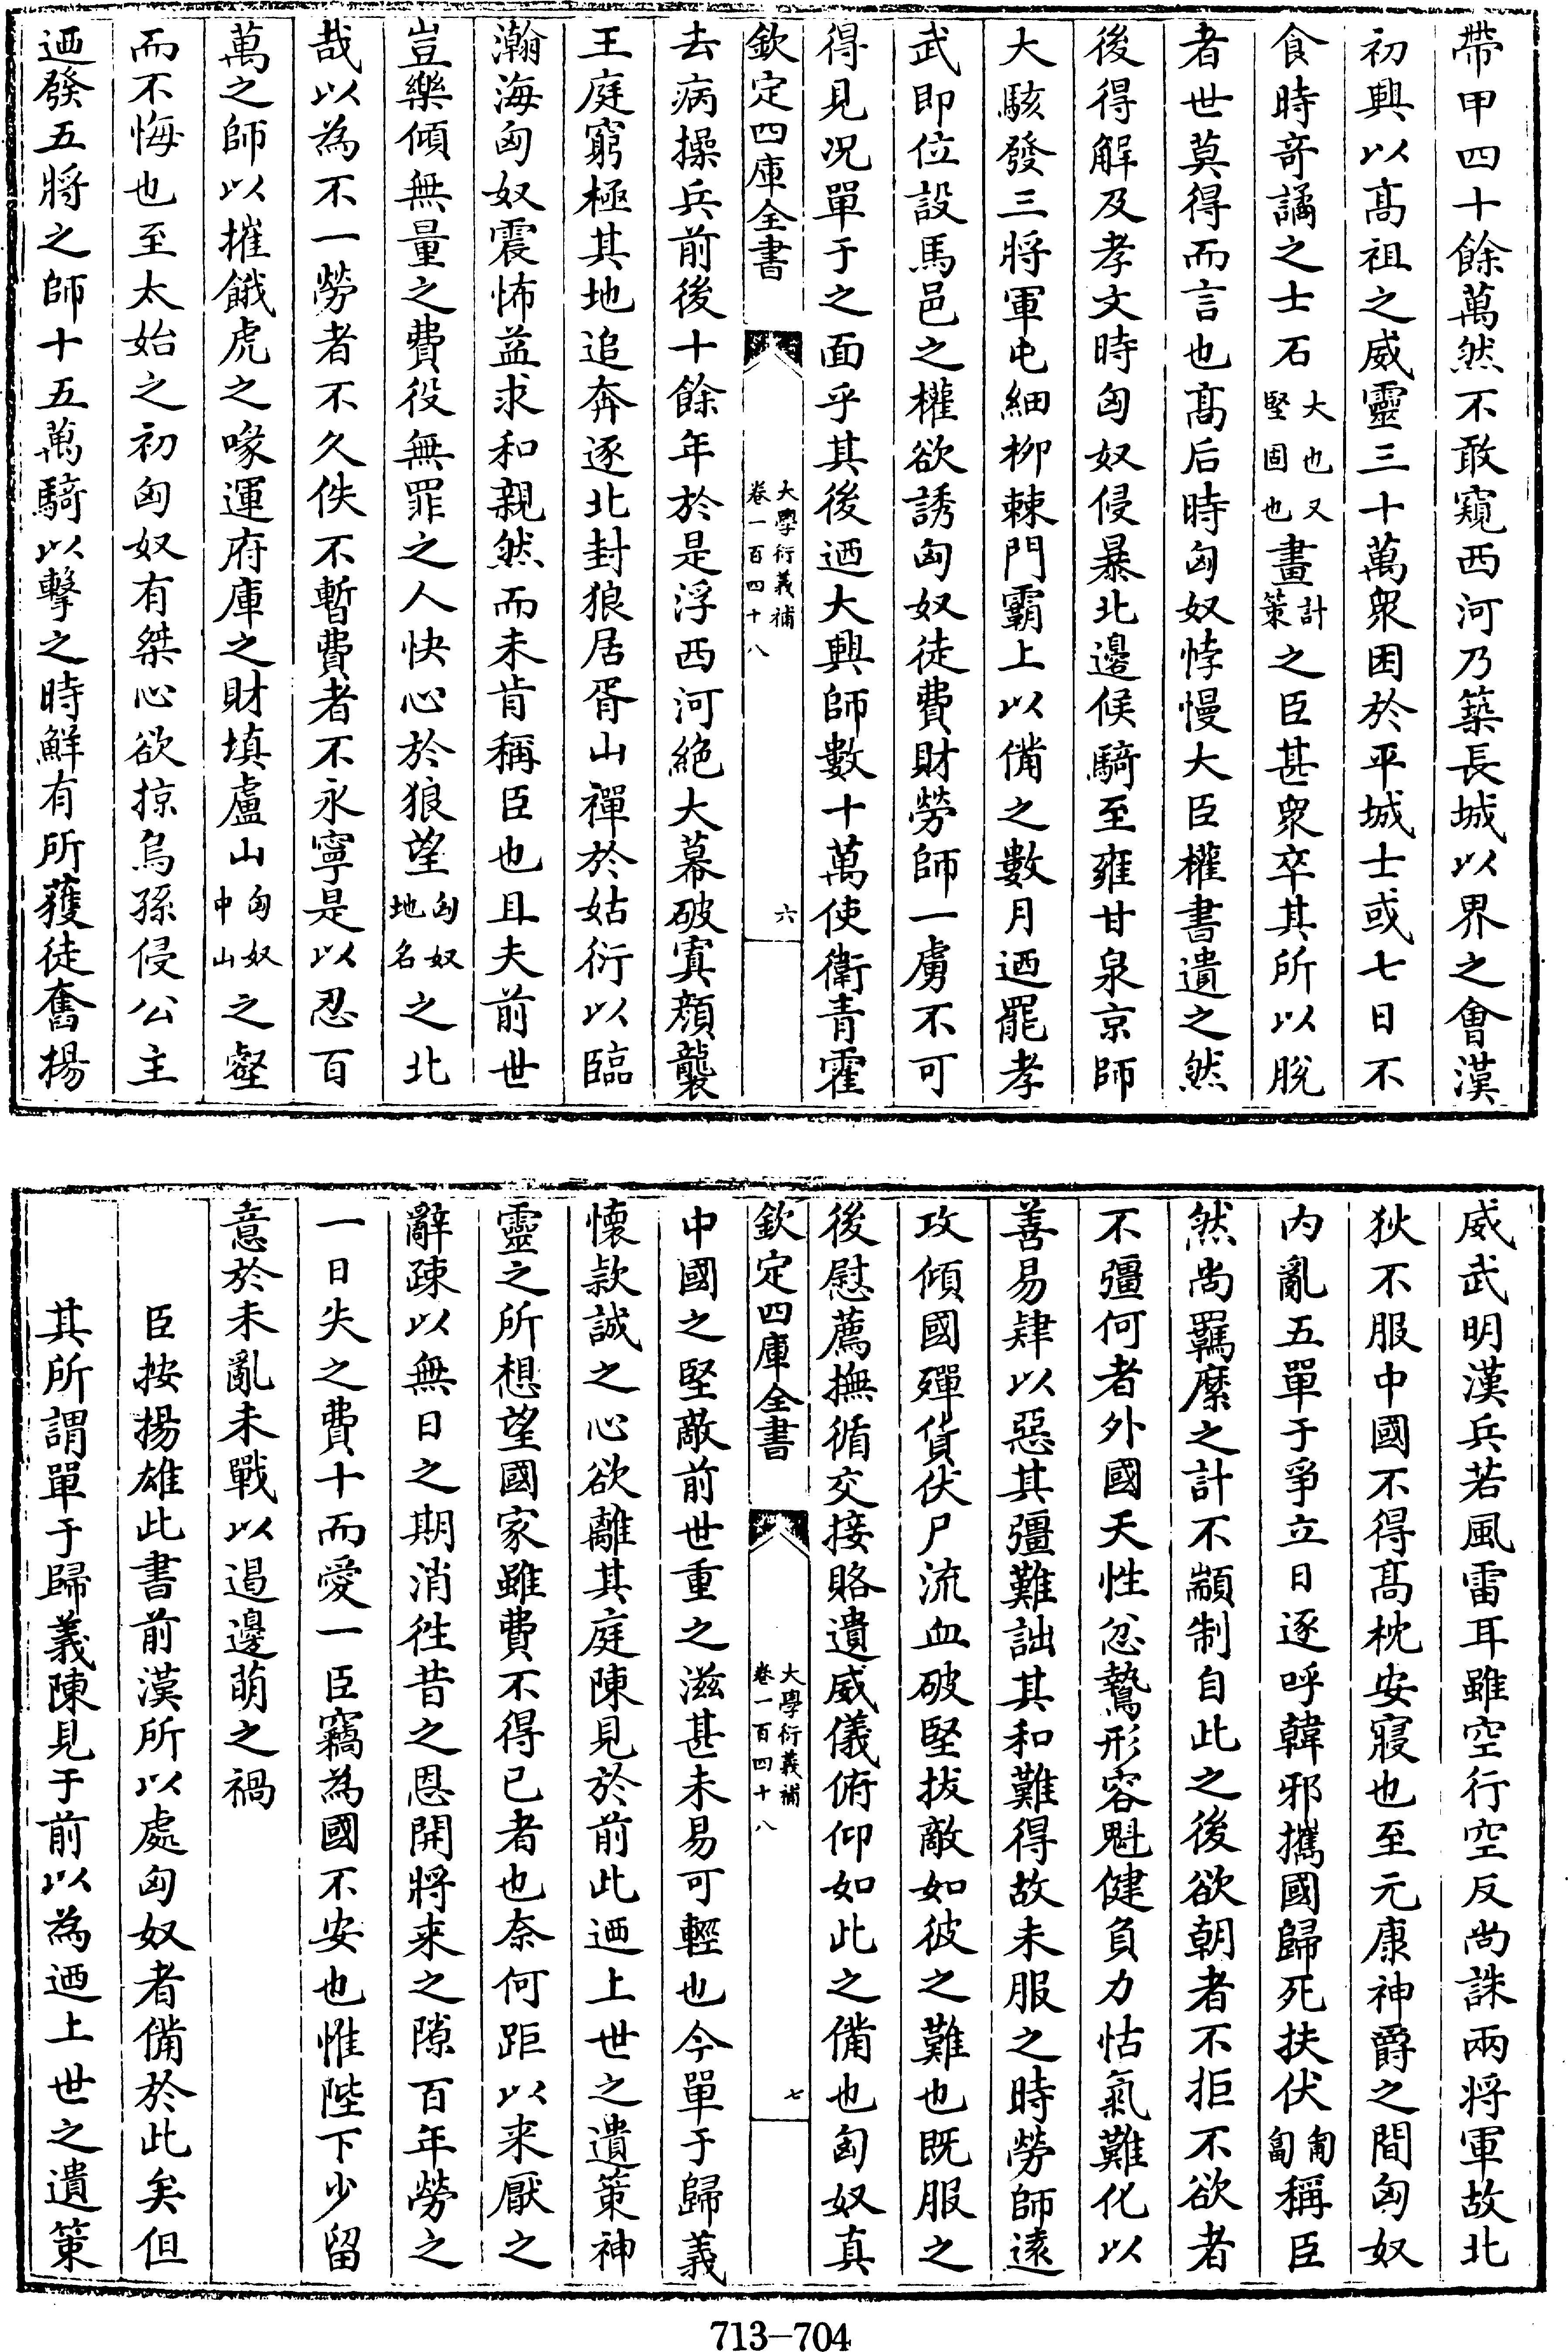 帶甲四十餘萬然不敢窺西河乃築長城以界之會漢
初興以髙祖之威靈三十萬衆困於平城士或七日不
食時竒譎之士石大也又堅固也畫計策之臣甚衆卒其所以脫
者世莫得而言也髙后時匈奴悖慢大臣權書遺之然
後得解及孝文時匈奴侵暴北邊候騎至雍甘泉京師
大駭發三將軍屯細柳棘門霸上以備之數月迺罷孝
武即位設馬邑之權欲誘匈奴徒費財勞師一虜不可
得見况單于之面乎其後迺大興師數十萬使衛青霍
欽定四庫全書
大學衍義補
卷一百四十八
六
去病操兵前後十餘年於是浮西河絶大幕破寘顔襲
王庭窮極其地追奔逐北封狼居胥山禪於姑衍以臨
瀚海匈奴震怖益求和親然而未肯稱臣也且夫前世
豈樂傾無量之費役無罪之人快心於狼望匈奴地名之北
哉以為不一勞者不久佚不暫費者不永寧是以忍百
萬之師以摧餓虎之喙運府庫之財填盧山匈奴中山之壑
而不悔也至太始之初匈奴有桀心欲掠烏孫侵公主
迺發五將之師十五萬騎以擊之時鮮有所獲徒奮揚
威武明漢兵若風雷耳雖空行空反尚誅兩將軍故北
狄不服中國不得髙枕安寢也至元康神爵之間匈奴
内亂五單于爭立日逐呼韓邪攜國歸死扶伏匍匐稱臣
然尚羈縻之計不顓制自此之後欲朝者不拒不欲者
不彊何者外國天性忿鷙形容魁健負力怙氣難化以
善易肄以惡其彊難詘其和難得故未服之時勞師遠
攻傾國殫貨伏尸流血破堅拔敵如彼之難也既服之
後慰薦撫循交接賂遺威儀俯仰如此之備也匈奴真
欽定四庫全書
大學衍義補
卷一百四十八
七
中國之堅敵前世重之滋甚未易可輕也今單于歸義
懐款誠之心欲離其庭陳見於前此迺上世之遺策神
靈之所想望國家雖費不得已者也奈何距以来厭之
辭疎以無日之期消徃昔之恩開將来之隙百年勞之
一日失之費十而愛一臣竊為國不安也惟陛下少留
意於未亂未戰以遏邊萌之禍
臣按揚雄此書前漢所以處匈奴者備於此矣但
其所謂單于歸義陳見于前以為迺上世之遺策
713-704